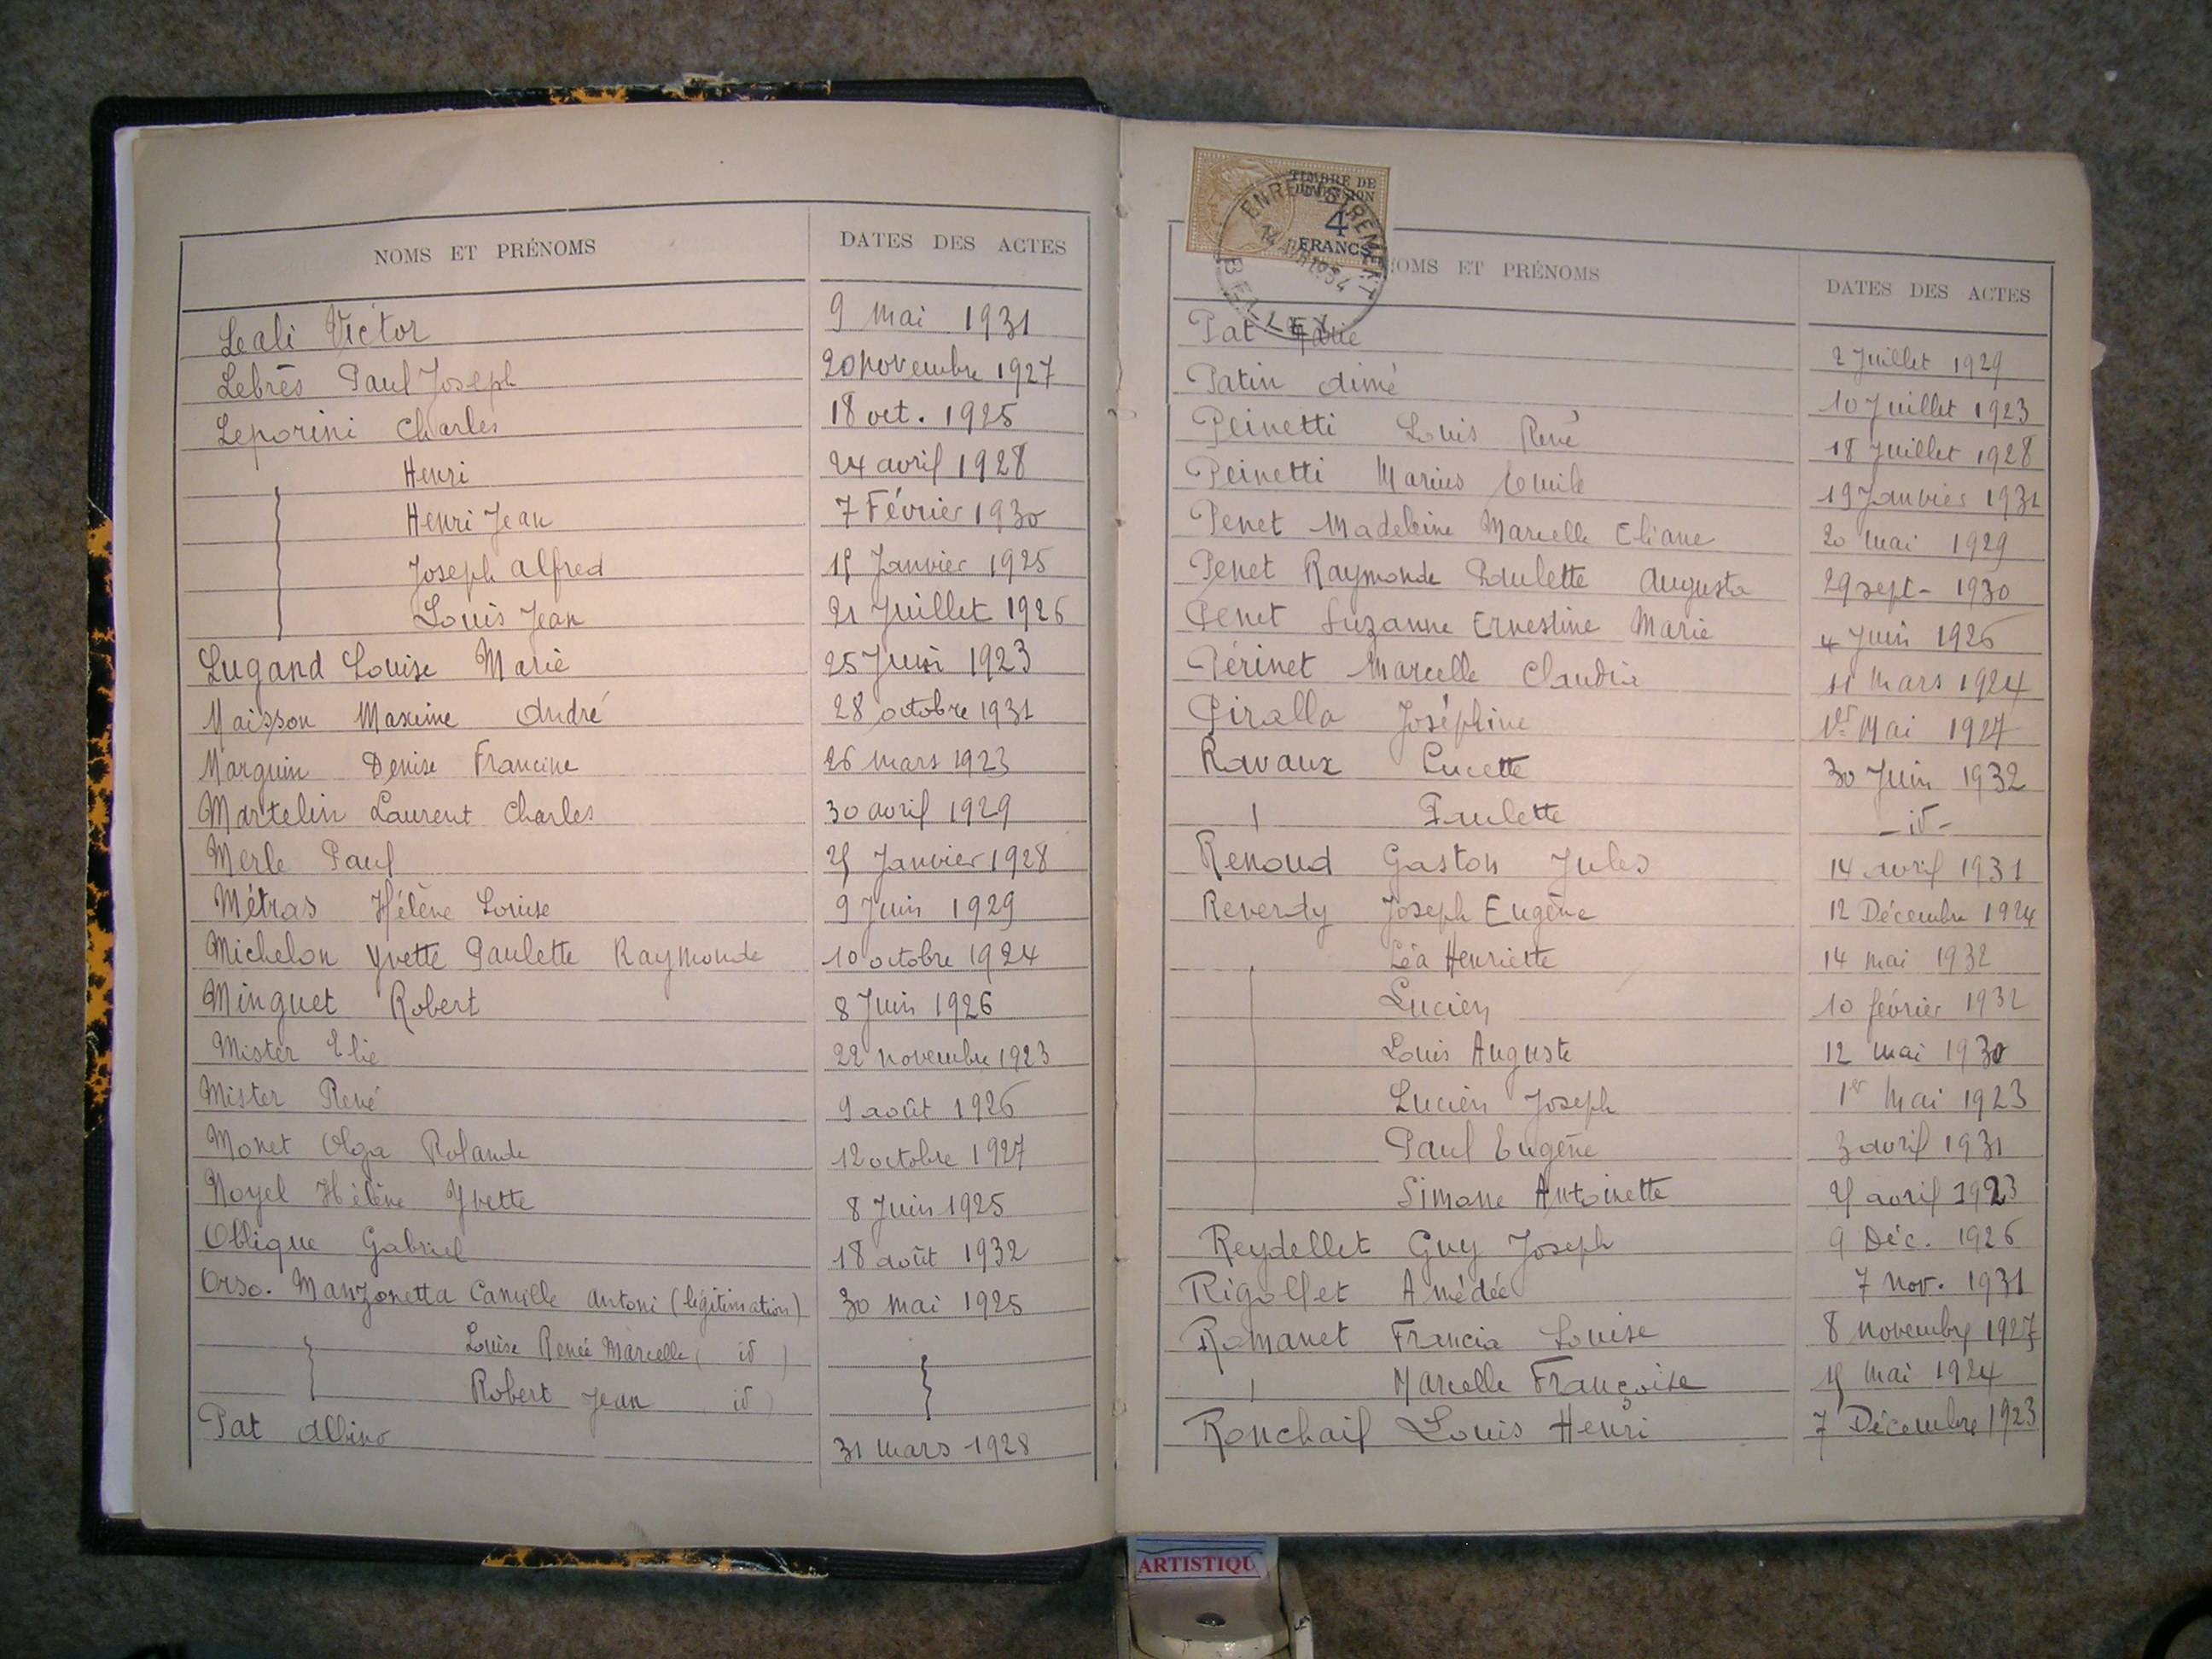 NOMS ET PRÉNOMS DATES DES ACTES
Leali Victor 9 mai 1931
Lebrès Paul Joseph 20 novembre 1927
Leporini Charles 18 oct. 1925
Henri 24 avril 1928
Henri Jean 7 Février 1930
Joseph Alfred 15 Janvier 1925
Louis Jean 21 Juillet 1926
Lugand Louise Marie 25 Juin 1923
Maisson Maxime André 28 octobre 1931
Marguin Denise Francine 26 mars 1923
Martelin Laurent Charles 30 avril 1929
Merle Paul 25 Janvier 1928
Métras Hélène Louise 9 Juin 1929
Michelon Yvette Paulette Raymonde 10 octobre 1924
Minguet Robert 8 Juin 1926
Mister Elie 22 novembre 1923
Mister René 9 août 1926
Monet Olga Rolande 12 octobre 1927
Noyel Hélène Yvette 8 Juin 1925
Oblique Gabriel 18 août 1932
Orso. Manzonetta Camille Antoni (légitimation) 30 mai 1925
Louise Renée Marcelle ( id )
Robert Jean id )
Pat Albino 31 mars 1928
TIMBRE DE
DIMENSION
4
FRANCS
ENREGISTREMENT
BELLEY
NOMS ET PRÉNOMS DATES DES ACTES
Pat Marie 2 Juillet 1929
Patin Aimé 10 Juillet 1923
Peinetti Louis René 18 Juillet 1928
Peinetti Marius Emile 19 Janvier 1931
Penet Madeleine Marcelle Eliane 20 mai 1929
Penet Raymonde Paulette Augusta 29 sept- 1930
Penet Suzanne Ernestine Marie 4 Juin 1926
Périnet Marcelle Claudia 11 mars 1924
Piralla Joséphine 1er Mai 1927
Ravaux Lucette 30 Juin 1932
Paulette - id -
Renoud Gaston Jules 14 avril 1931
Reverdy Joseph Eugène 12 Décembre 1924
Léa Henriette 14 mai 1932
Lucien 10 février 1932
Louis Auguste 12 mai 1930
Lucien Joseph 1er Mai 1923
Paul Eugène 3 avril 1931
Simone Antoinette 25 avril 1923
Reydellet Guy Joseph 9 Déc. 1926
Rigollet Amédée 7 nov. 1931
Romanet Francia Louise 8 novembre 1927
Marcelle Françoise 15 mai 1924
Ronchail Louis Henri 7 Décembre 1923
ARTISTIQU